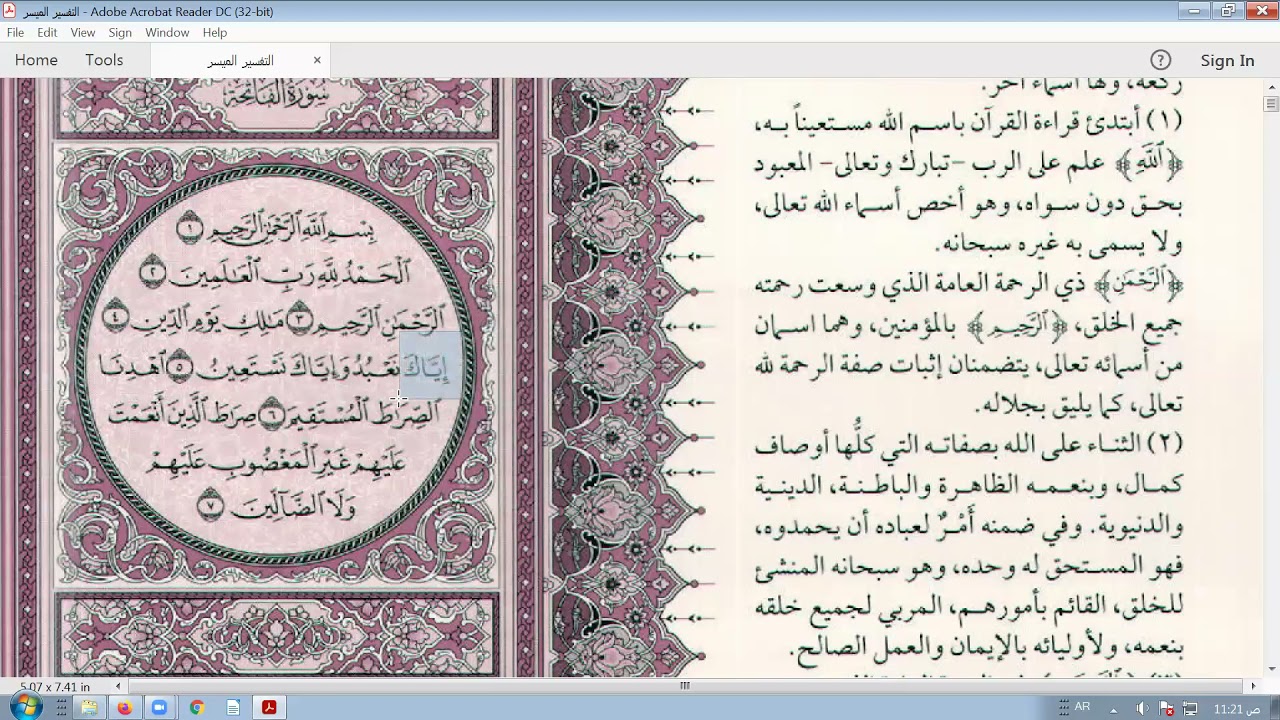 التفسير الميسر - Adobe Acrobat Reader DC (32-bit)
File Edit View Sign Window Help
Home Tools التفسير الميسر × ? Sign In
سُورَةُ الفَاتِحَةِ
بِسْمِ ٱللَّهِ ٱلرَّحْمَٰنِ ٱلرَّحِيمِ ١
ٱلْحَمْدُ لِلَّهِ رَبِّ ٱلْعَٰلَمِينَ ٢
ٱلرَّحْمَٰنِ ٱلرَّحِيمِ ٣ مَٰلِكِ يَوْمِ ٱلدِّينِ ٤
إِيَّاكَ نَعْبُدُ وَإِيَّاكَ نَسْتَعِينُ ٥ ٱهْدِنَا
ٱلصِّرَٰطَ ٱلْمُسْتَقِيمَ ٦ صِرَٰطَ ٱلَّذِينَ أَنْعَمْتَ
عَلَيْهِمْ غَيْرِ ٱلْمَغْضُوبِ عَلَيْهِمْ
وَلَا ٱلضَّآلِّينَ ٧
ركعة، ولها أسماء أخر.
(١) أبتدئ قراءة القرآن باسم الله مستعيناً به،
﴿ٱللَّهِ﴾ علم على الرب -تبارك وتعالى- المعبود
بحق دون سواه، وهو أخص أسماء الله تعالى،
ولا يسمى به غيره سبحانه.
﴿ٱلرَّحْمَٰنِ﴾ ذي الرحمة العامة الذي وسعت رحمته
جميع الخلق، ﴿ٱلرَّحِيمِ﴾ بالمؤمنين، وهما اسمان
من أسمائه تعالى، يتضمنان إثبات صفة الرحمة لله
تعالى، كما يليق بجلاله.
(٢) الثناء على الله بصفاته التي كلُّها أوصاف
كمال، وبنعمه الظاهرة والباطنة، الدينية
والدنيوية. وفي ضمنه أَمْرٌ لعباده أن يحمدوه،
فهو المستحق له وحده، وهو سبحانه المنشئ
للخلق، القائم بأمورهم، المربي لجميع خلقه
بنعمه، ولأوليائه بالإيمان والعمل الصالح.
5.07 x 7.41 in
AR
11:21 ص